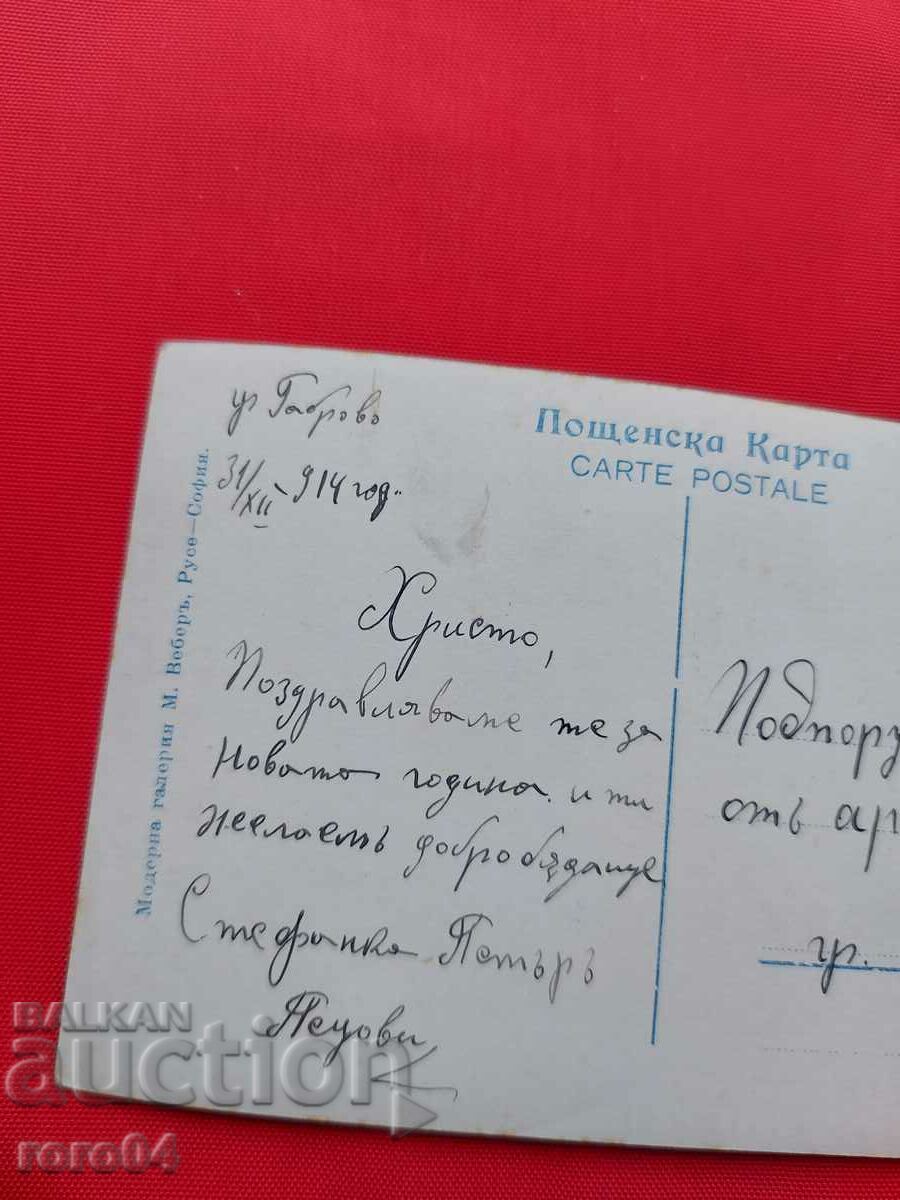 гр Габрово
31/XII 914 год.
Пощенска Карта
CARTE POSTALE
Модерна галерия М. Веберъ, Русе—София.
Христо,
Поздравляваме те за
Новата година и ти
желаемъ добро бѫдаще
Стефанка Петъръ
Пецови
Подпору
отъ ар
гр.
BALKAN
auction
roro04